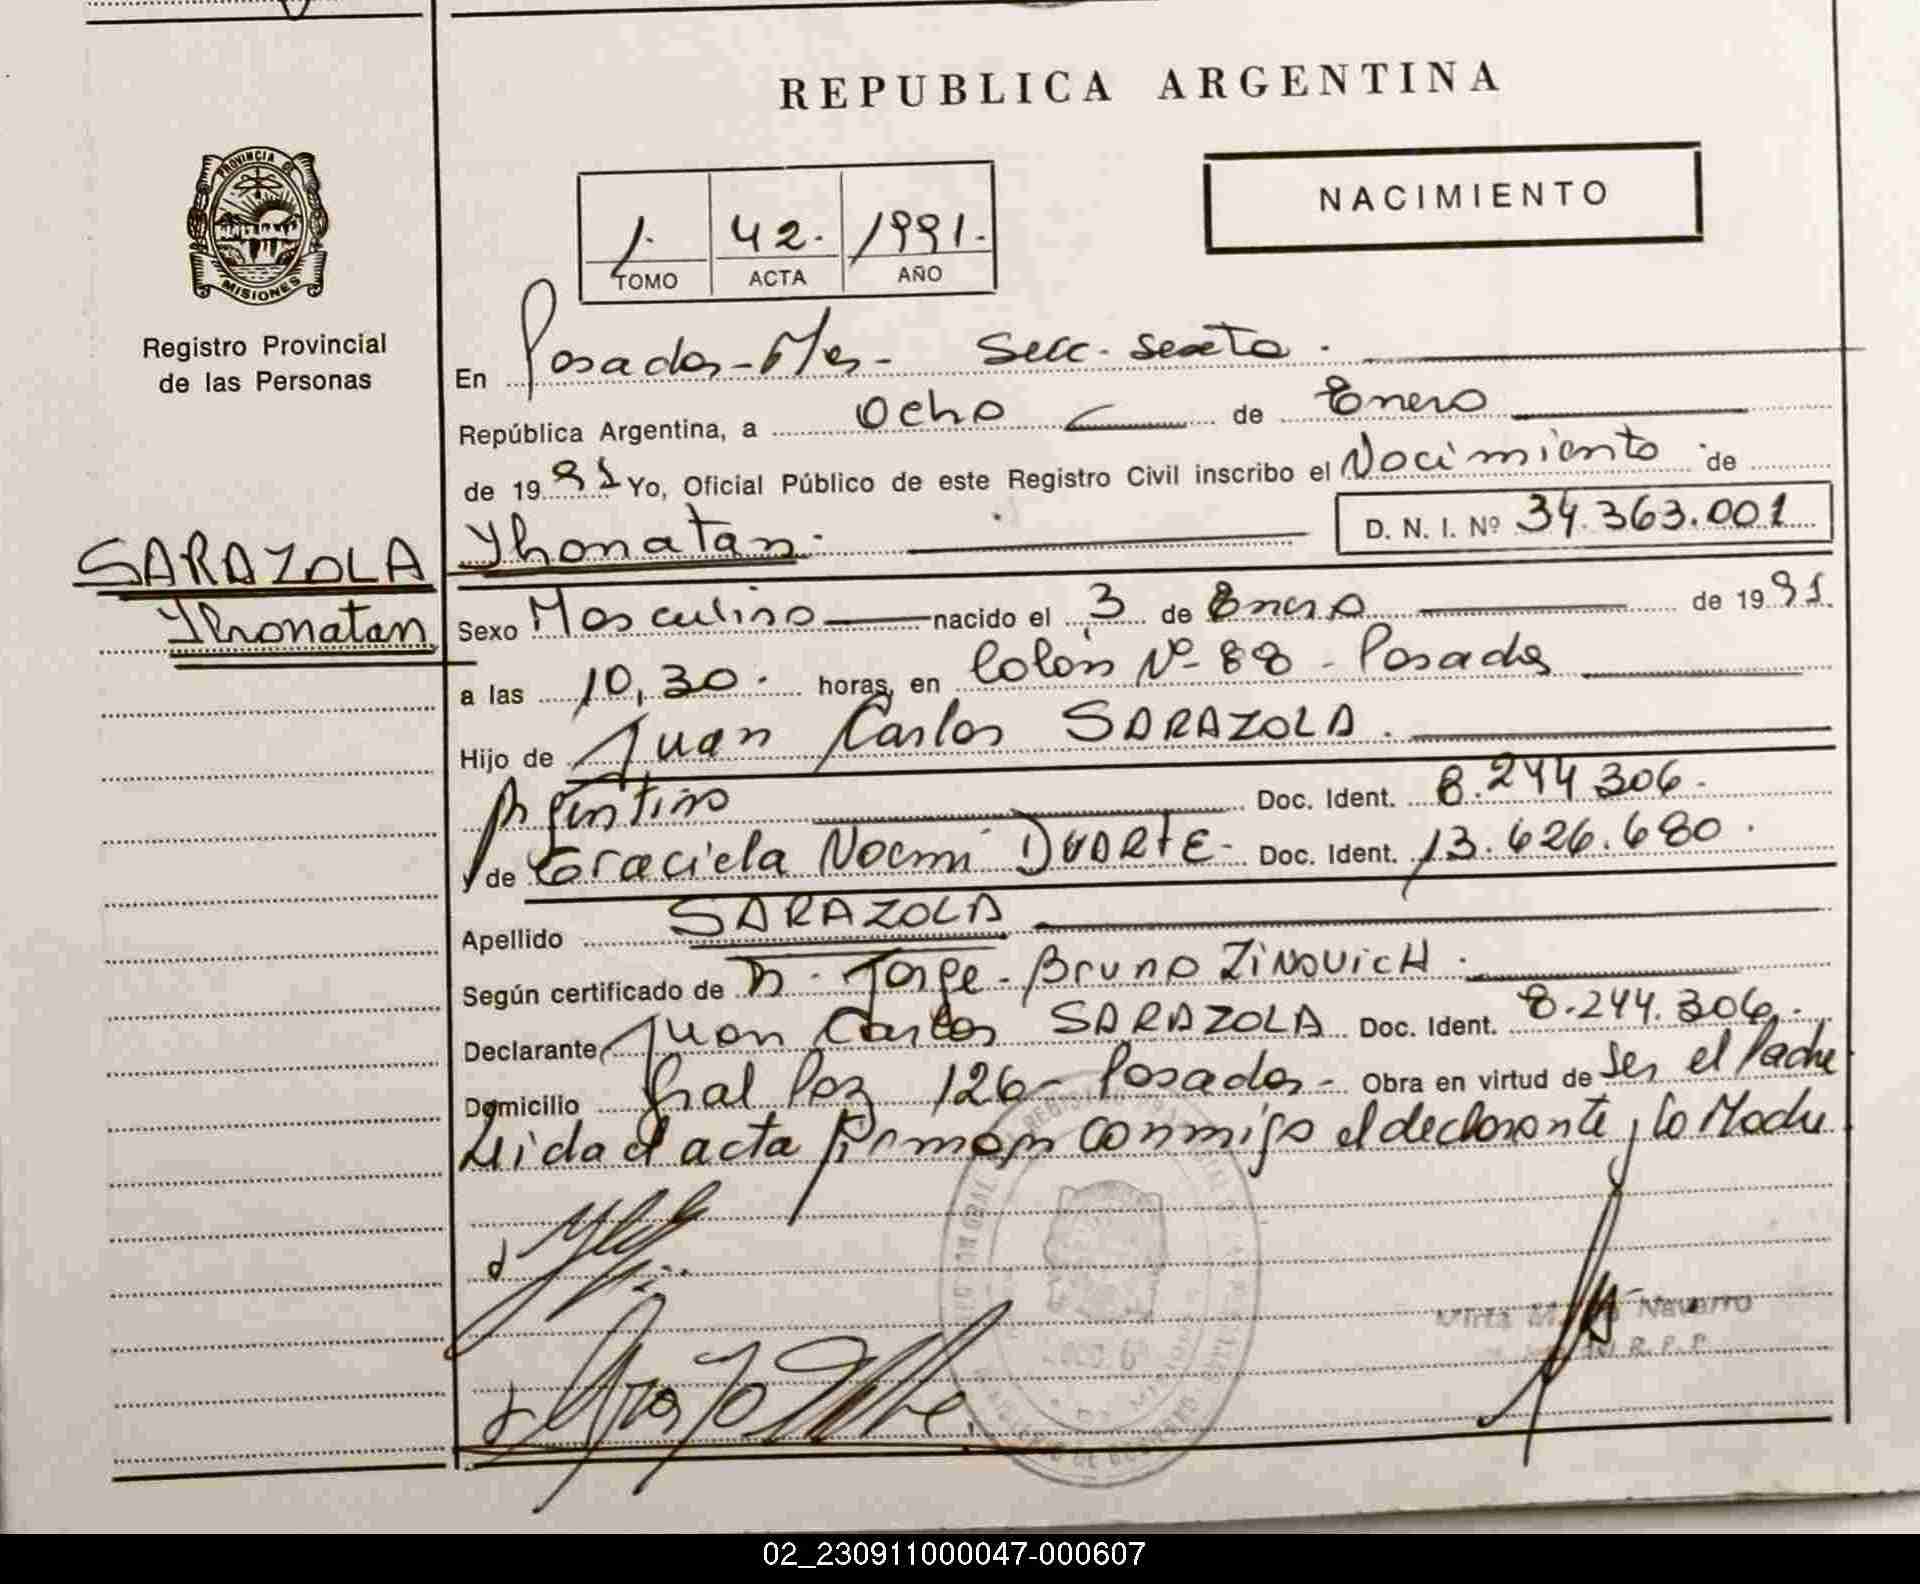 REPUBLICA ARGENTINA
PROVINCIA DE
MISIONES
Registro Provincial
de las Personas
NACIMIENTO
1. 42. 1991.
TOMO ACTA AÑO
En Posadas-Mes- Secc. sexta.
República Argentina, a Ocho de Enero
de 1991 Yo, Oficial Público de este Registro Civil inscribo el Nacimiento de
Jhonatan. D. N. I. Nº 34.363.001
SARAZOLA
Jhonatan
Sexo Masculino nacido el 3 de Enero de 1991.
a las 10,30. horas, en Colón Nº 88 - Posadas
Hijo de Juan Carlos SARAZOLA.
Argentino Doc. Ident. 8.244.306.
y de Graciela Noemi DUARTE- Doc. Ident. 13.626.680.
Apellido SARAZOLA
Según certificado de D. Jorge - Bruno ZINOVICH.
Declarante Juan Carlos SARAZOLA Doc. Ident. 8.244.306.
Domicilio Gral Paz 126- Posadas- Obra en virtud de Ser el Padre
Leida el acta firman conmigo el declarante y la Madre
Navarro
R. P. P.
02_230911000047-000607